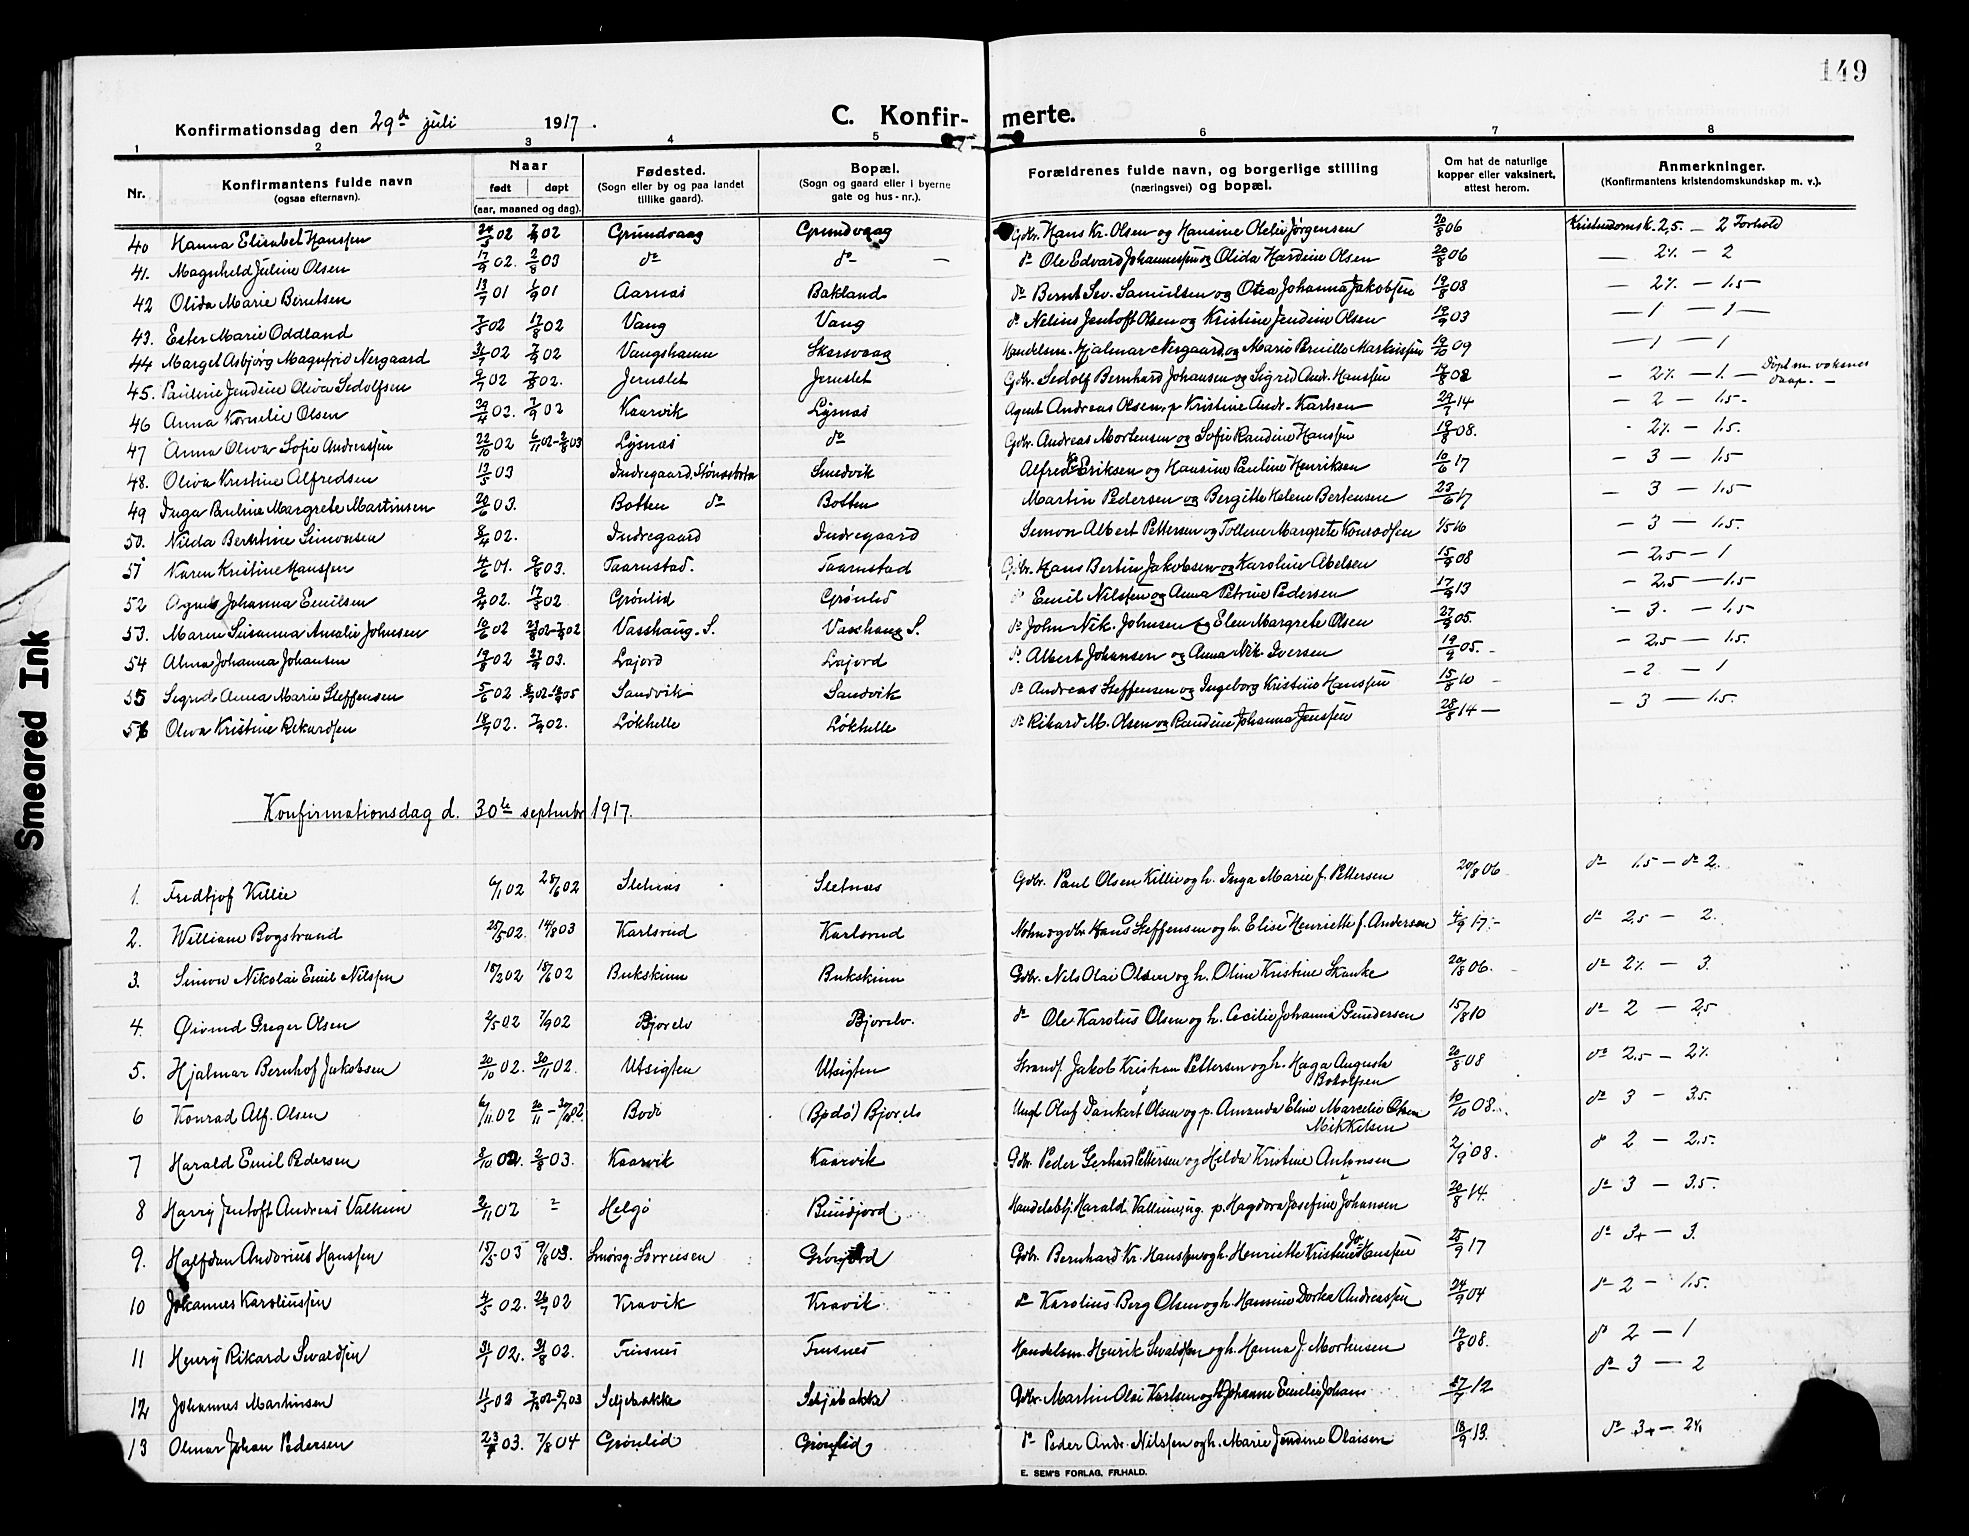 149
Konfirmationsdag den 29de juli 1917.
C. Konfir- merte.
1 2 3 4 5 6 7 8
Nr. Konfirmantens fulde navn (ogsaa efternavn). Naar født døpt (aar, maaned og dag). Fødested. (Sogn eller by og paa landet tillike gaard). Bopæl. (Sogn og gaard eller i byerne gate og hus-nr.). Forældrenes fulde navn, og borgerlige stilling (næringsvei) og bopæl. Om hat de naturlige kopper eller vaksinert, attest herom. Anmerkninger. (Konfirmantens kristendomskundskap m. v.).
40 Hanna Elisabet Hanssen 24/5 02 7/9 02 Grundvaag Grundvaag Gdbr. Hans Kr. Olsen og Hansine Olelie Jørgensen 20/8 06 Kristendomsk. 2,5. — 2 Forhold
41. Magnhild Juline Olsen 17/9 02. 2/8 03 do do — do Ole Edvard Johannessen og Olida Hardine Olsen 20/8 06 — 2½ — 2
42 Olida Marie Berntsen 13/7 01 1/9 01 Aarnes Bakland do Bernt Sev. Samuelsen og Otea Johanna Jakobsen 19/8 08 — 2½ — 1.5 —
43. Ester Marie Oddland 7/5 02 17/8 02 Vang Vang do Nelius Jentoft Olsen og Kristine Jendine Olsen 19/9 03 — 1 — 1 —
44 Marget Asbjørg Magnfrid Nergaard 31/7 02 7/9 02 Vangshamn Skarsvaag Handelsm. Hjalmar Nergaard og Marie Pernille Markussen 19/10 09 — 1 — 1
45. Pauline Jendine Oliva Sedolfsen 9/7 02 7/8 02. Jernslet Jernslet Gdbr. Sedolf Bernhard Johansen og Sigrid Andr. Hanssen 17/8 08 — 2½ — 1. — Døpt m. voksnes daap. —
46 Anna Kornelie Olsen 29/4 02. 7/9 02 Kaarvik Lysnes Agent Andreas Olsen, p. Kristine Andr. Karlsen 29/7 14 — 2 — 1.5 -
47 Anna Oliva Sofie Andreassen 22/10 02 6/11 02 - 2/8 03 Lysnes do Gdbr. Andreas Mortensen og Sofie Randine Hanssen 19/8 08. - 2½ — 1.5.
48. Oliva Kristine Alfredsen 13/5 03 Indregaard, Stønesbotn Smedvik Alfred Kr. Eriksen og Hansine Pauline Henriksen 10/6 17 — 3 — 1.5
49 Inga Pauline Margrete Martinsen 20/6 03. Botten do Botten Martin Pedersen og Bergitte Helene Berteusen 23/6 17 — 3 — 1.5
50. Nilda Berntine Simonsen 8/4 02. Indregaard Indregaard Simon Albert Pettersen og Tolline Margrete Konradsen 1/5 16 — 3 — 1.5.
51 Karen Kristine Hanssen 4/6 01. 9/8 03. Taarnstad. Taarnstad Gdbr. Hans Bertin Jakobsen og Karoline Abelsen 15/9 08 — 2,5 — 1
52 Agnes Johanna Emilsen 9/4 02. 17/8 02 Grønlid Grønlid do Emil Nilssen og Anna Petrine Pedersen 17/9 13 — 2.5 — 1.5
53. Maren Susanna Amalie Johnsen 10/6 02 23/8 02 - 7/9 02 Vasshaug. S. Vasshaug S. do John Nik. Johnsen og Elen Margrete Olsen 27/9 05. — 3. — 1.5
54 Alma Johanna Johansen 19/8 02 27/9 03. Lajord Lajord do Albert Johansen og Anna Nik. Iversen 19/9 05. - — 2.5 — 1.5.
55 Sigrid Anna Marie Steffensen 5/6 02. Sandvik Sandvik do Andreas Steffensen og Ingeborg Kristine Hanssen 15/8 10 — - 2 — 1
56 Oliva Kristine Rikardsen 18/7 02. 7/9 02. Løkhelle Løkhelle do Rikard M. Olsen og Randine Johanna Jenssen 28/8 14 — — 3 — 1.5.
Konfirmationsdag d. 30te septembr 1917.
1. Fredtjof Killie 6/1 02 28/6 02 Sletnes Sletnæs Gdbr. Paul Olsen Killie og h. Inga Marie f. Pettersen 20/8 06 do 1.5 — do 2.
2. William Bogstrand 25/5 02. 14/8 03 Karlsrud Karlsrud Hans Steffensen og h. Elise Henriette f. Andersen 4/9 17. - do 2,5 — 2.
3. Simon Nikolai Emil Nilssen 18/2 02 15/6 02 Bukskinn Bukskinn Gdbr. Nels Olai Olsen og h. Oline Kristine Skanke 20/8 06. do 2½ — 3.
4. Øivind Greger Olsen 2/5 02 7/9 02 Bjorelv Bjorelv. do Ole Karolius Olsen og h. Cecilie Johanna Gundersen 15/8 10 do 2 — 2,5
5. Hjalmar Bernhof Jakobsen 20/10 02. 30/11 02. Utsigten Utsigten Strands. Jakob Kristian Pettersen og h. Haga Augusta Botolfsen 20/8 08 do 2.5 — 2½.
6 Konrad Alf. Olsen 6/11 02 Bodø (Bodø) Bjorelv Ungk Oluf Dankert Olsen og p. Amanda Eline Marcelie Olsen Mikkelsen 10/10 08.. do 3 — 3.5
7 Harald Emil Pedersen 8/10 02. 2/8 03. Kaarvik Kaarvik Gdbr. Peder Gerhard Pettersen og Hilda Kristine Antonsen 2/9 08. do 2 — 2.5.
8 Harry Jentoft Andreas Vallum 2/11 02 — Helgø Bundjord Handelsbtj. Harald Vallum, ug. p. Hagdora Josefine Johansen 20/8 14. do 3 — 3.5.
9. Halfdan Andorius Hanssen 15/5 03 9/8 03. Smørsg. Sørreisen Grønjord Gdbr. Bernhard Kr. Hanssen og h. Henriette Kristine Jo- Hanssen 25/9 17 do 3+ — 3.
10 Johannes Karoliussen 4/5 02. 26/7 02 Kravik Kravik do Karolius Berg Olsen og h. Hansine Dortea Andreassen 24/9 04 do 2 — 1.5.
11 Henry Rikard Sivaldsen 31/1 02. 31/8 02. Finsnes Finsnes Handelsm. Henrik Sivaldsen og h. Hanna J. Mortensen 19/8 08. do 2 — 1
12 Johannes Martinsen 11/5 02 Seljebakke Seljebakke Gdbr. Martin Olai Karlsen og h. Johanne Emilie Johans 27/7 12 do 3 — 2
13 Olmar Johan Pedersen 23/7 03. 7/8 04 Grønlid Grønlid do Peder Andr. Nilssen og h. Marie Jendine Olaisen 18/9 13. do 3+ — 2½
E. SEM'S FORLAG, FR.HALD.
Smeared Ink